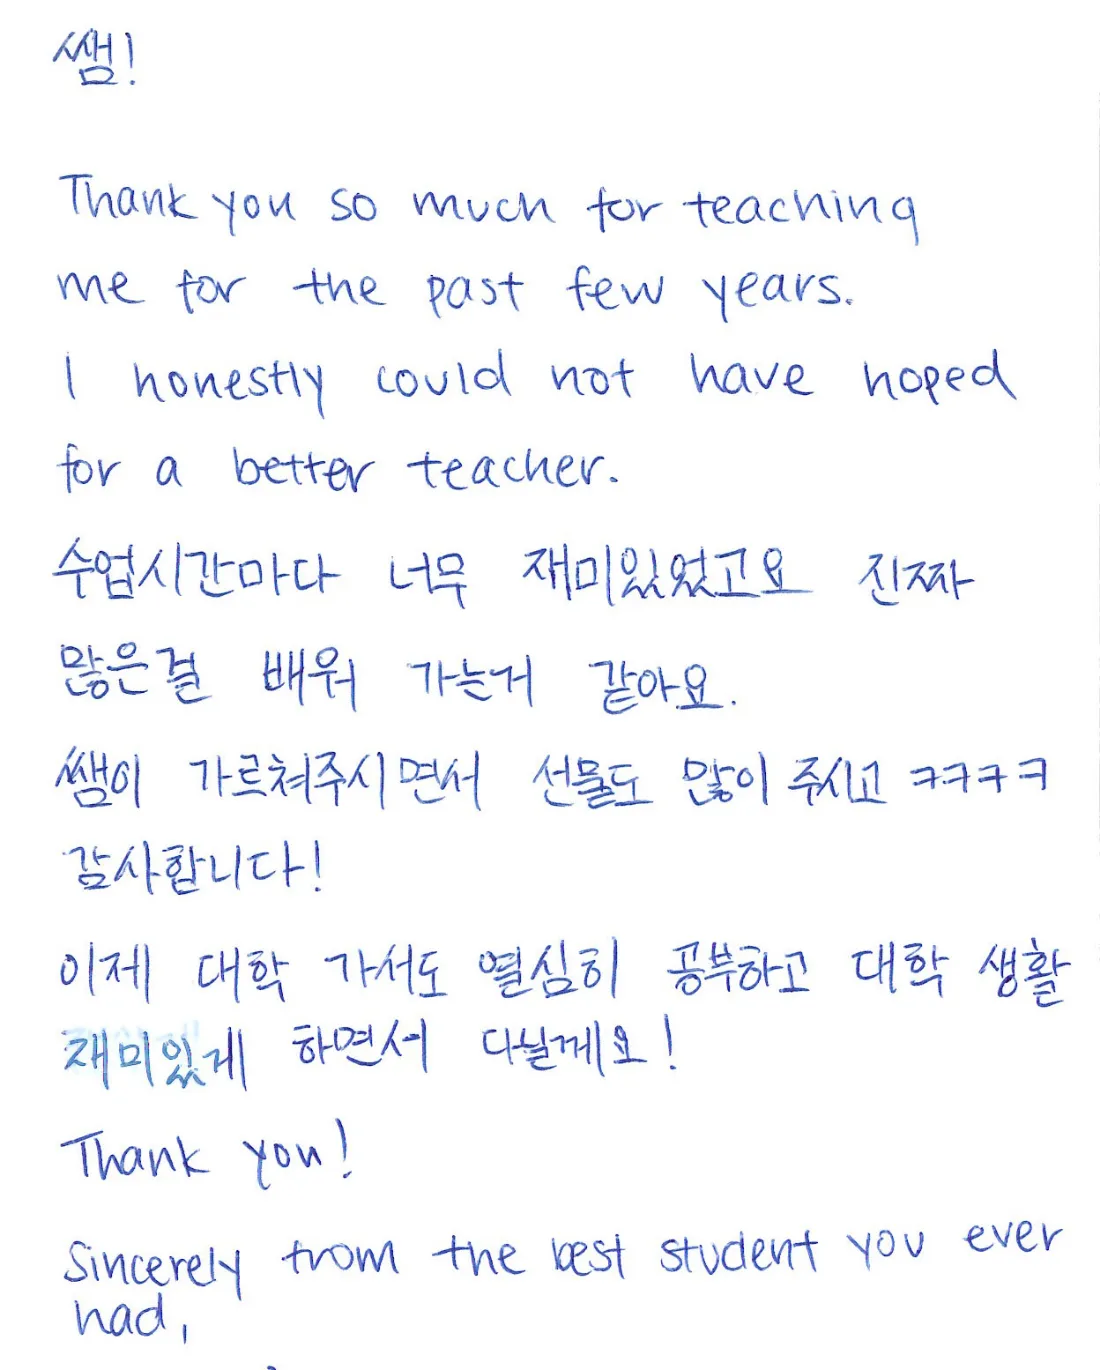 쌤!
Thank you so much for teaching
me for the past few years.
I honestly could not have hoped
for a better teacher.
수업시간마다 너무 재미있었고요 진짜
많은걸 배워 가는거 같아요.
쌤이 가르쳐주시면서 선물도 많이 주시고 ㅋㅋㅋㅋ
감사합니다!
이제 대학 가서도 열심히 공부하고 대학 생활
재미있게 하면서 다닐께요!
Thank you!
Sincerely from the best student you ever
had,